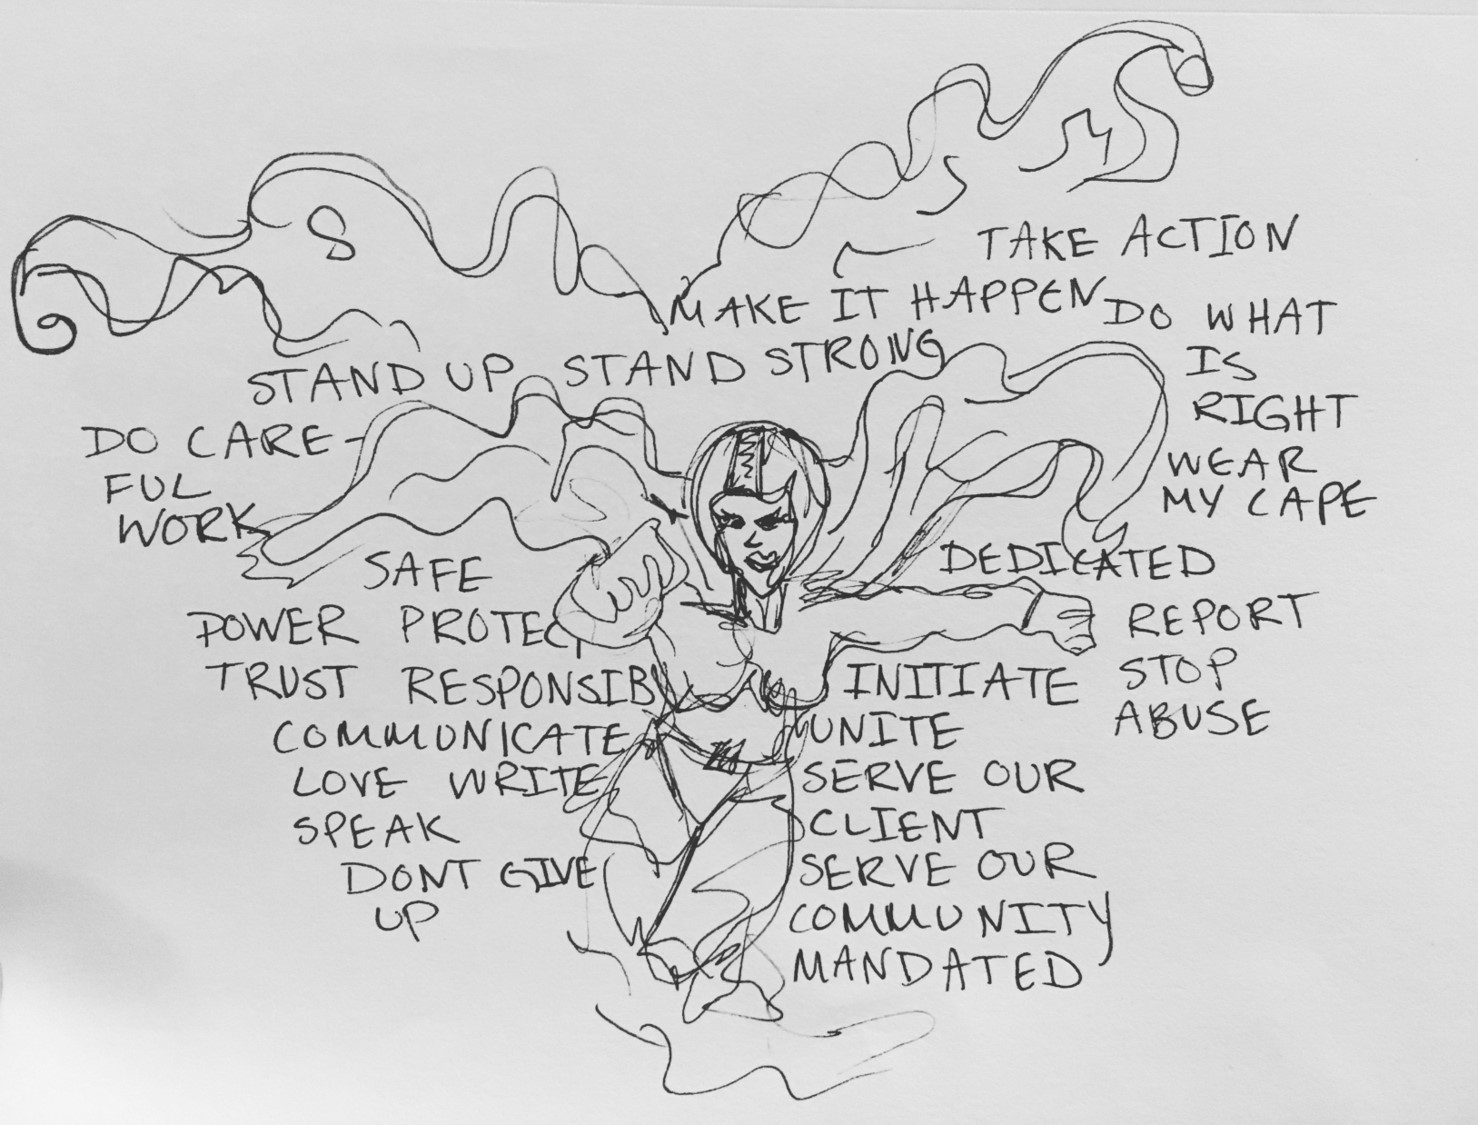 TAKE ACTION
MAKE IT HAPPEN
STAND UP STAND STRONG
DO WHAT
IS
RIGHT
WEAR
MY CAPE
DO CARE-
FUL
WORK
SAFE
POWER PROTEC
TRUST RESPONSIB
COMMUNICATE
LOVE WRITE
SPEAK
DONT GIVE
UP
DEDICATED
REPORT
STOP
ABUSE
INITIATE
UNITE
SERVE OUR
CLIENT
SERVE OUR
COMMUNITY
MANDATED